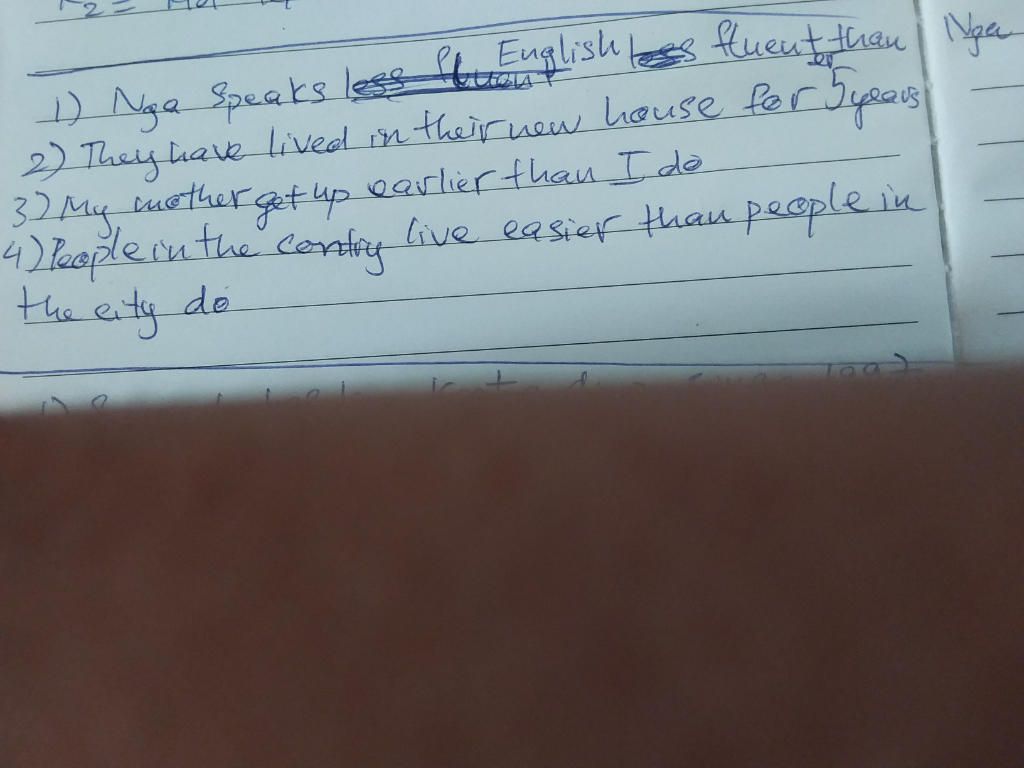 1) Nga speaks English fluent than Nga
er
2) They have lived in their new house for 5 years
3) My mother get up earlier than I do
4) People in the contry live easier than people in
the city do